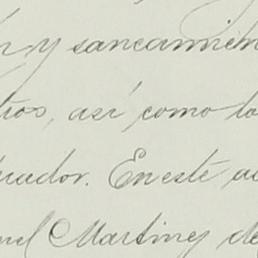 y saneamien
tros, así como lo
rador. En esté a
el Martinez de